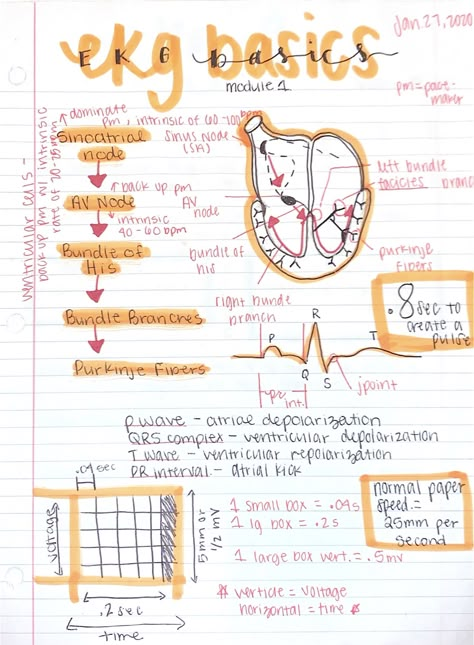 Jan. 27, 2020
ekg basics
EKG basics
module 1
pm = pace-
maker
↑ dominate
pm, intrinsic of 60-100 bpm
Sinoatrial
node
AV Node
↑ back up pm
↓ intrinsic
40-60 bpm
Bundle of
His
Bundle Branches
Purkinje Fibers
ventricular cells -
back up pm w/ intrinsic
rate of 20-
Sinus Node
(SA)
AV
node
bundle of
his
right bunde
branch
left bundle
branch
purkinje
Fibers
.8 sec to
create a
pulse
P
R
Q
S
T
pr
int.
jpoint
P wave - atriae depolarization
QRS complex - ventricular depolarization
T wave - ventricular repolarization
PR interval - atrial kick
.04 sec
voltage
5 mm or
1/2 mV
.2 sec
time
1 small box = .04s
1 lg box = .2s
1 large box vert. = .5mv
* verticle = voltage
horizontal = time *
normal paper
speed =
25mm per
second